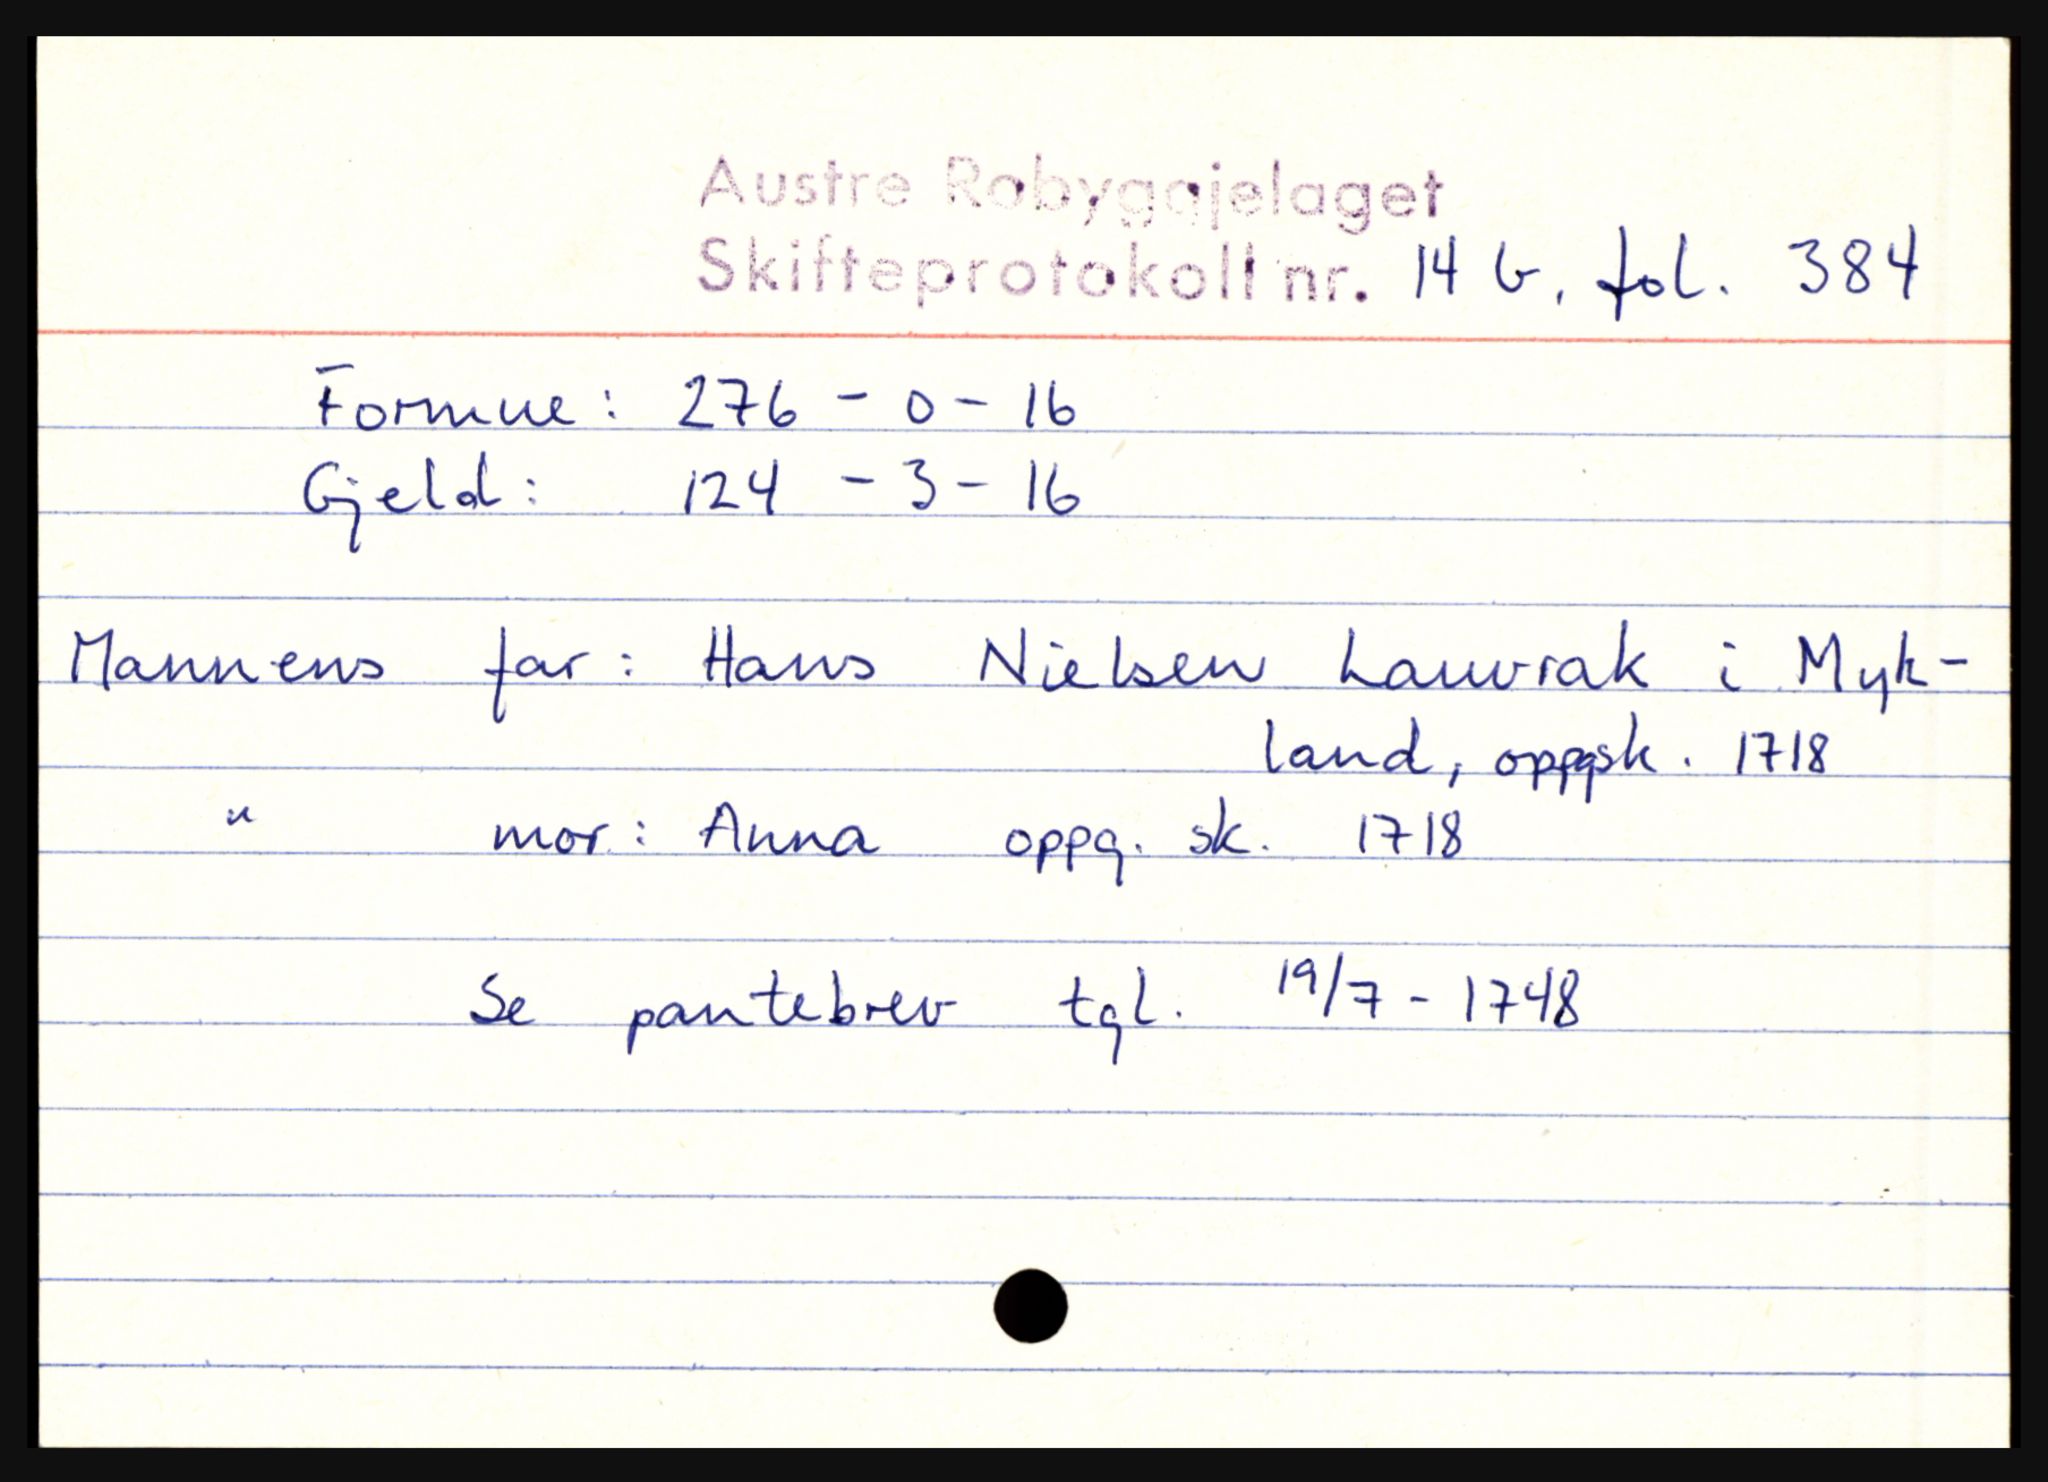 Austre Robyggjelaget
Skifteprotokoll nr. 14 b, fol. 384
Formue: 276 - 0 - 16
Gjeld: 124 - 3 - 16
Mannens far: Hans Nielsen Lauvrak i Myk-
land, oppgsk. 1718
" mor: Anna oppg. sk. 1718
Se pantebrev tgl. 19/7 - 1748